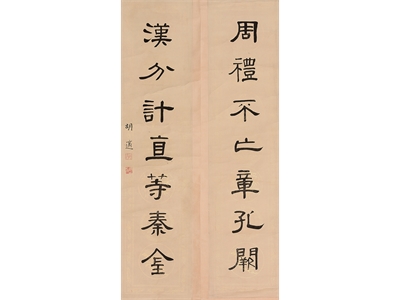 周禮不亡章孔闕
漢分計直等秦金
明道